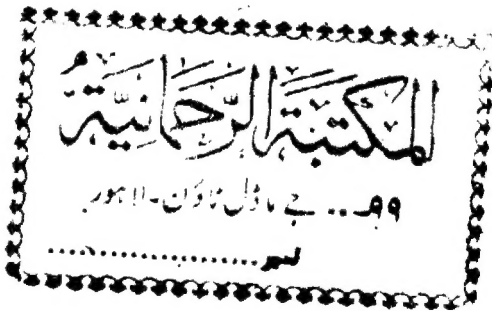 المكتبة الرحمانية
۹۹... جے ماڈل ٹاؤن - لاہور
نمبر..............................